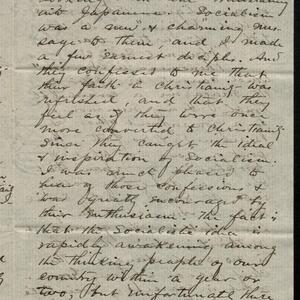 into Japanese. Socialism
was a new & charming mes-
sage to them, and I made
a few earnest disciples. And
they confessed to me that
their faith in Christianity was
refreshed, and that they
feel as if they were once
more converted to Christianity
since they caught the ideal
& inspiration of Socialism.
I was much pleased to
hear of those confessions &
was greatly encouraged by
their enthusiasm. The fact is
that the Socialistic idea is
rapidly awakening among
the thinking people of our
country within a year or
two, but unfortunately there